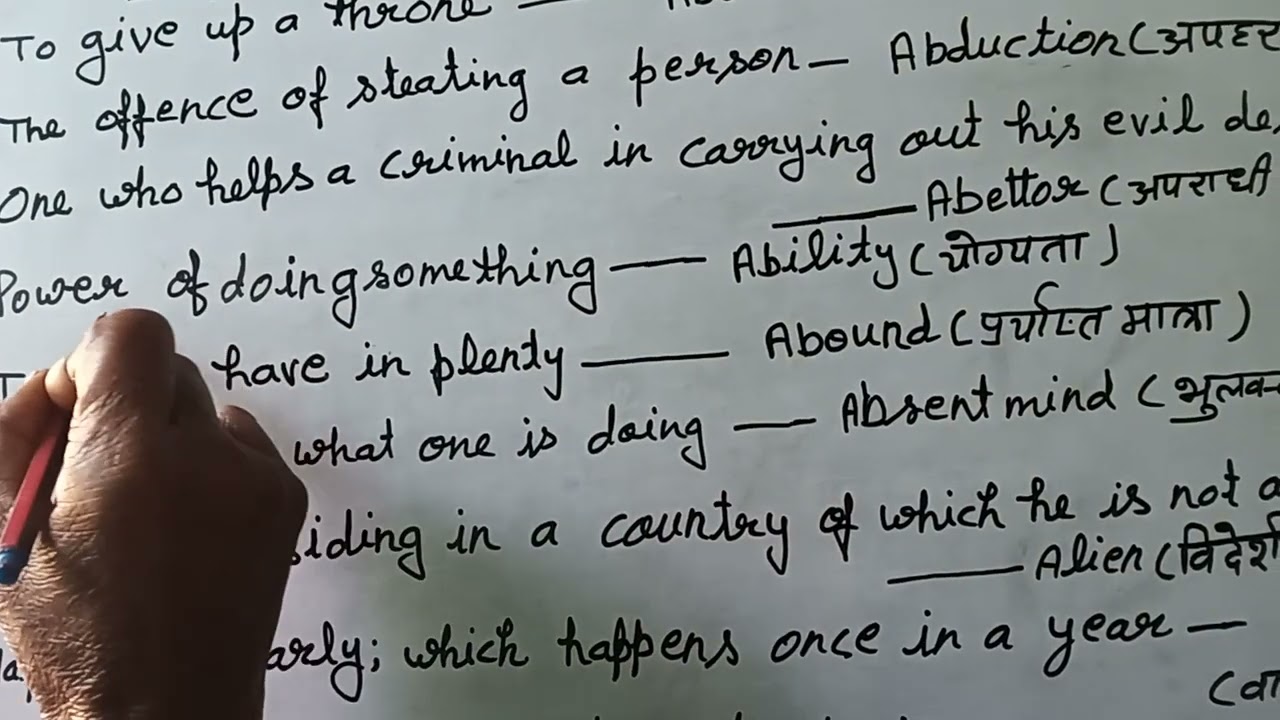 To give up a throne —
The offence of steating a person — Abduction (अपहर
One who helps a criminal in carrying out his evil de
—— Abettor (अपराधी
Power of doing something —— Ability (योग्यता)
have in plenty —— Abound (पर्याप्त मात्रा)
what one is doing — Absent mind (भुलक्क
siding in a country of which he is not a
—— Alien (विदेशी
arly; which happens once in a year —
(वा